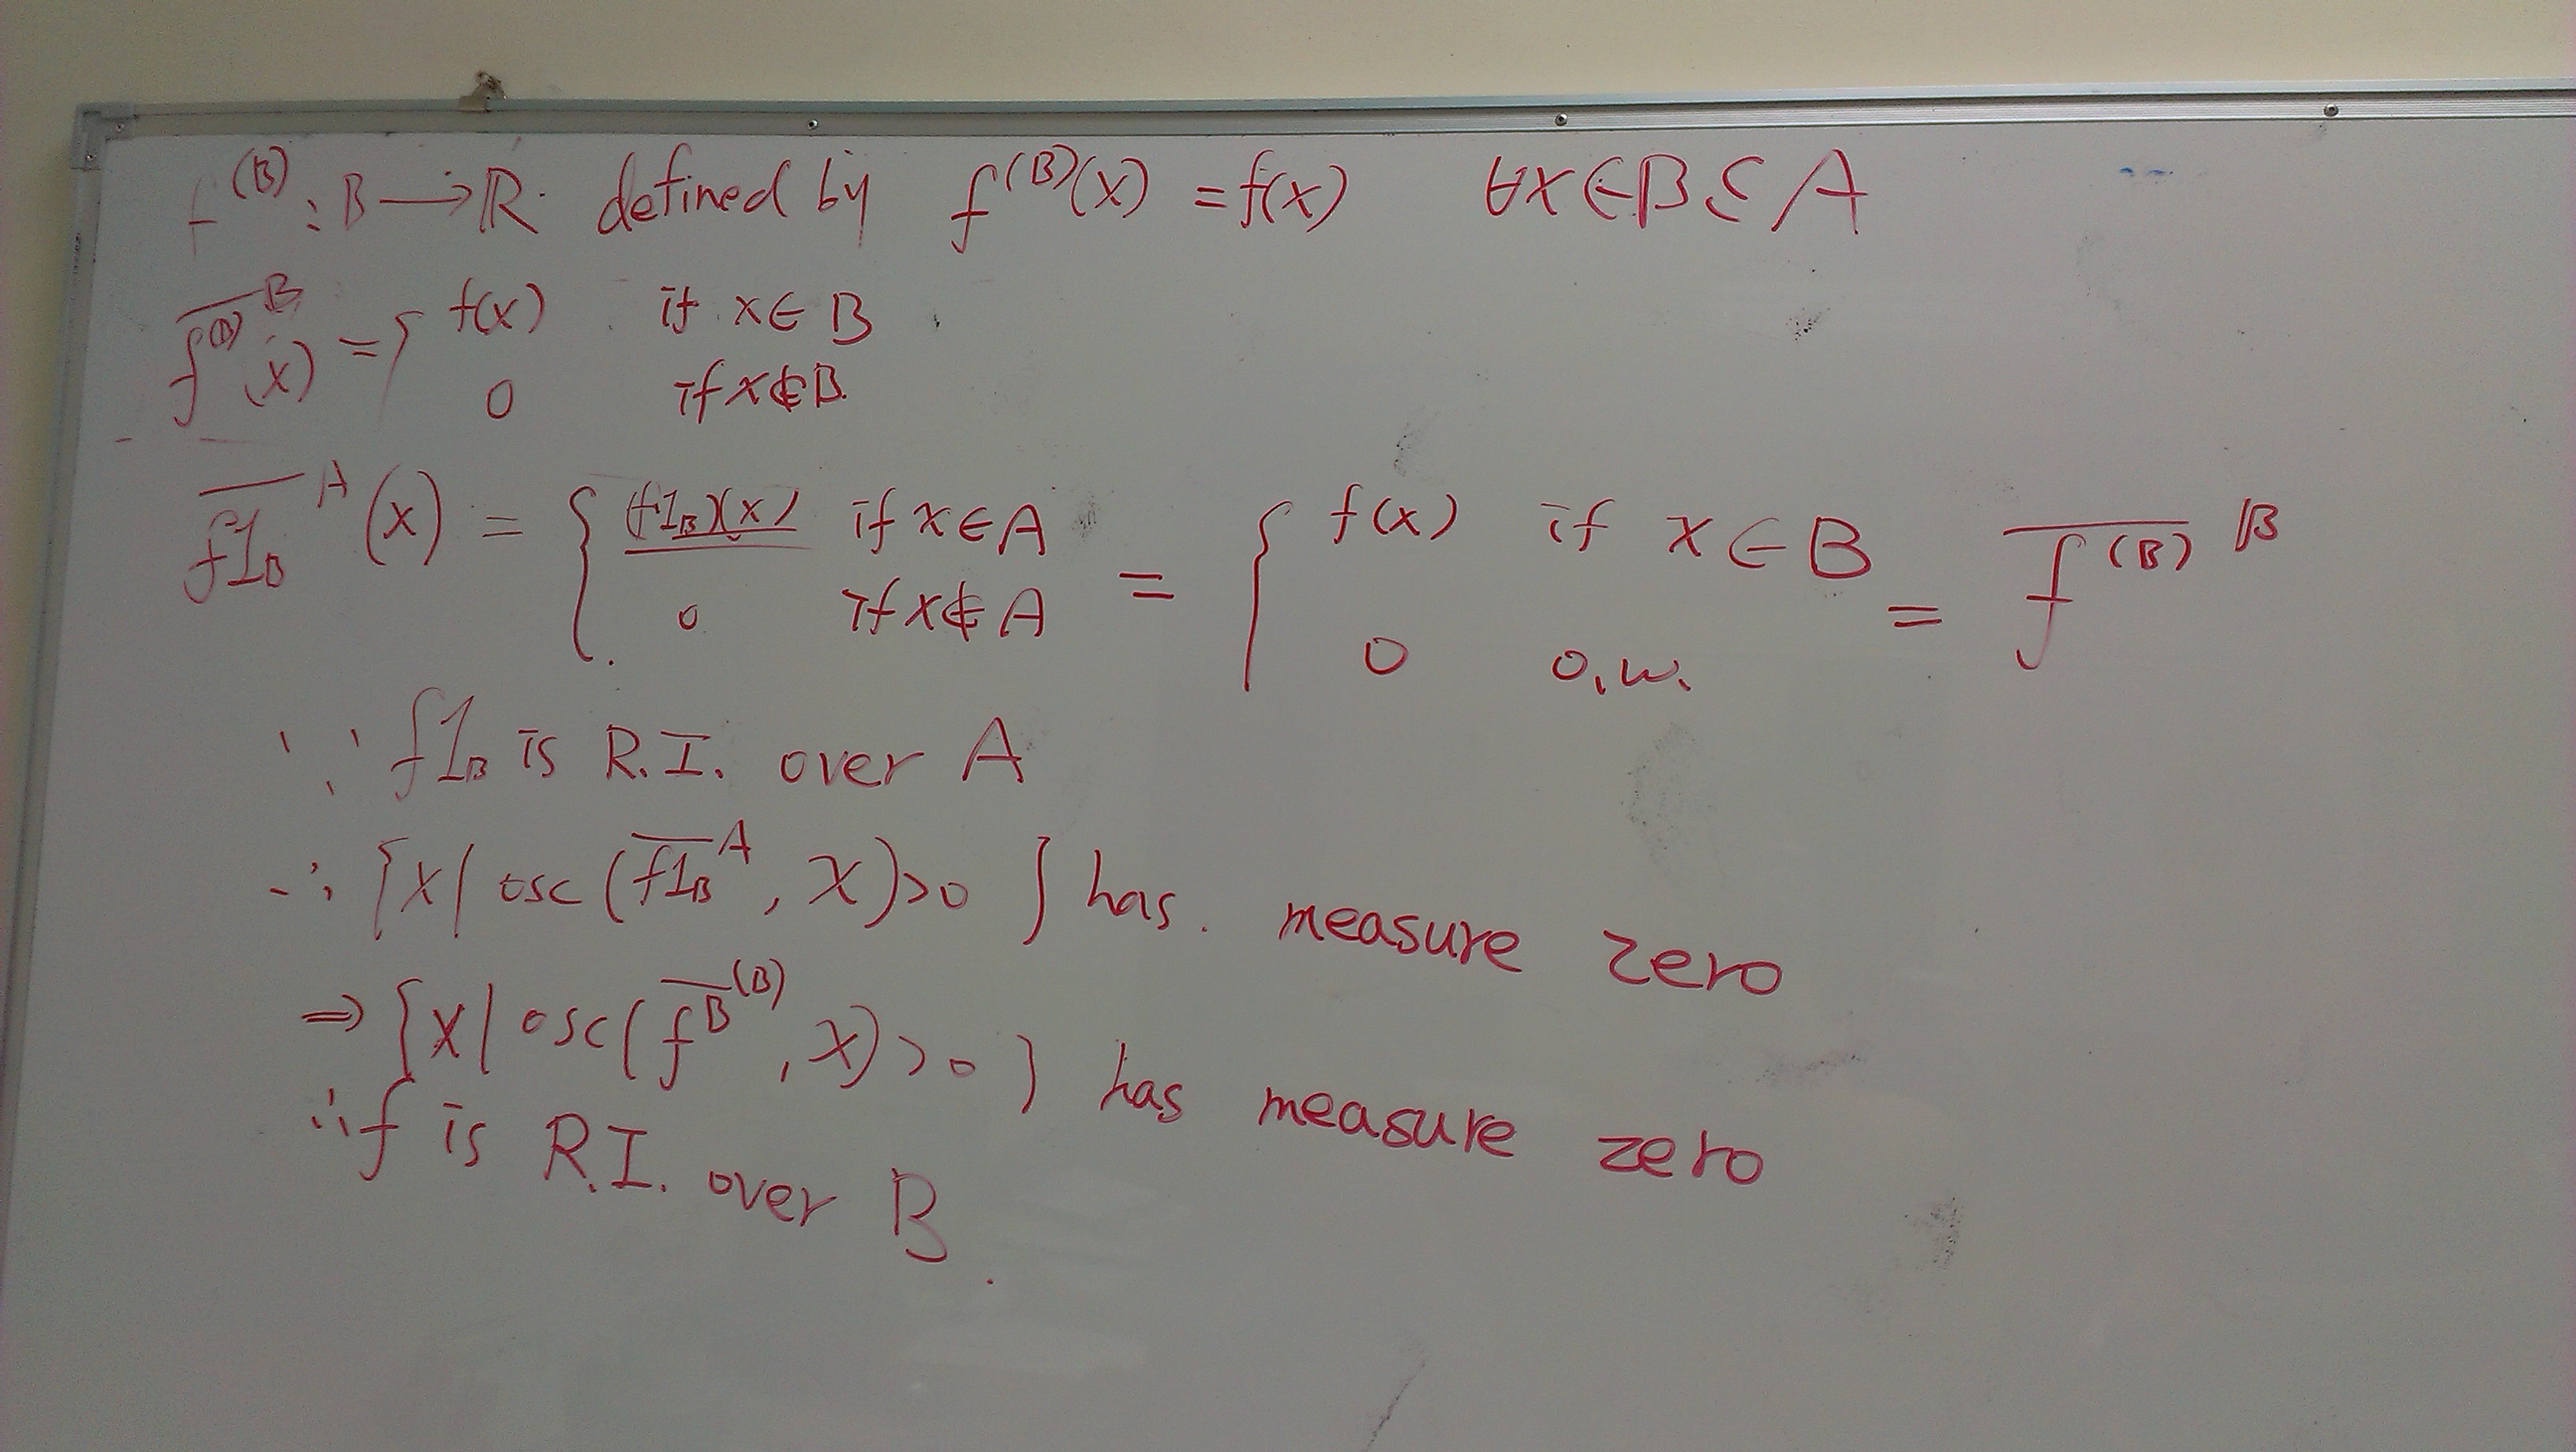 f^(B) : B → ℝ. defined by f^(B)(x) = f(x) ∀x∈B⊆A
\overline{f^{(B)}}^B(x) = { f(x) if x∈B
0 if x∉B.
\overline{f1_B}^A(x) = { (f1_B)(x) if x∈A = { f(x) if x∈B = \overline{f^{(B)}}^B
0 if x∉A 0 o.w.
∵ f1_B is R.I. over A
∴ {x| osc(\overline{f1_B}^A, x)>0 } has measure zero
⇒ {x| osc(\overline{f^B}^{(B)}, x)>0 } has measure zero
∴ f is R.I. over B.